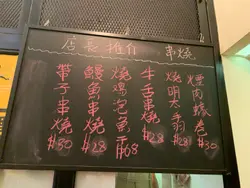 店長推介 串燒
帶子串燒 $30
鰻魚串燒 $28
燒鷄泡魚干 $68
牛舌串燒 $28
燒明太 $28
煙肉卷 $30